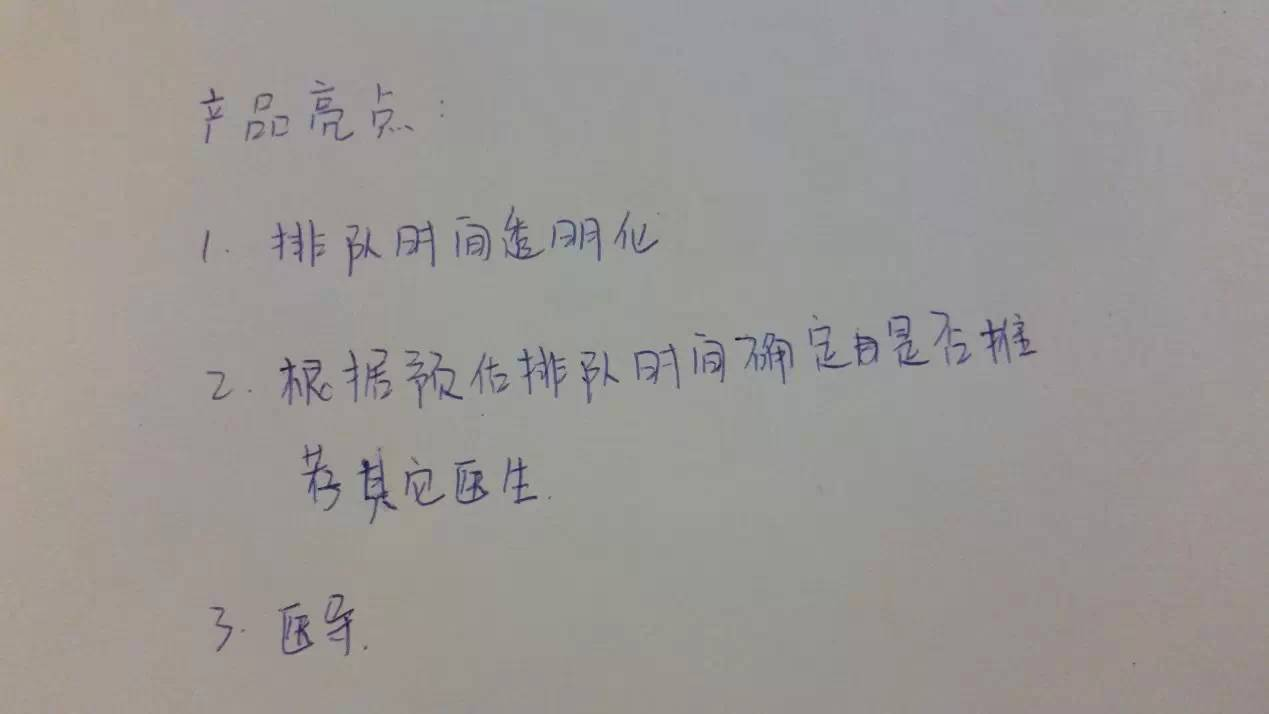 产品亮点:
1. 排队时间透明化
2. 根据预估排队时间确定是否推
荐其它医生.
3. 医导.